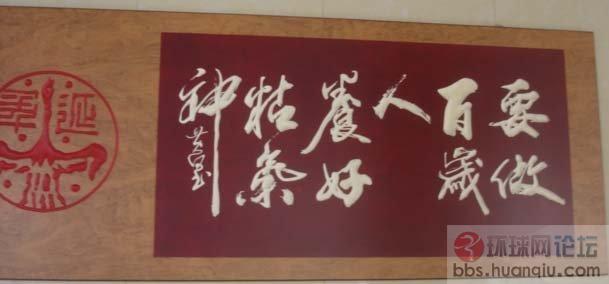 要做
百歲
人
養好
精氣
神
环球网论坛
bbs.huanqiu.com